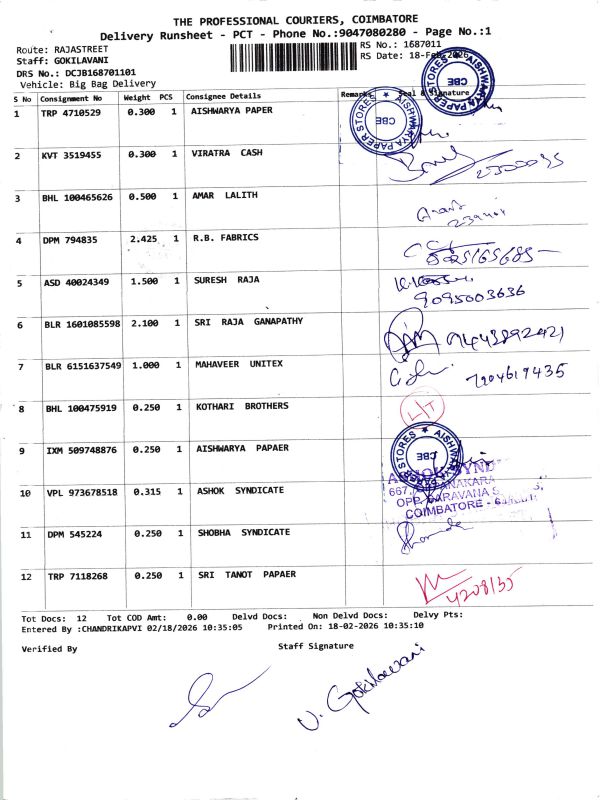 THE PROFESSIONAL COURIERS, COIMBATORE
Delivery Runsheet - PCT - Phone No.:9047080280 - Page No.:1
Route: RAJASTREET
Staff: GOKILAVANI
DRS No.: DCJB168701101
Vehicle: Big Bag Delivery
RS No.: 1687011
RS Date: 18-Feb-2026
S No Consignment No Weight PCS Consignee Details Remarks Seal & Signature
1 TRP 4710529 0.300 1 AISHWARYA PAPER
AISHWARYA PAPER STORES ★ CBE
AISHWARYA PAPER STORES ★ CBE
2 KVT 3519455 0.300 1 VIRATRA CASH
3 BHL 100465626 0.500 1 AMAR LALITH
4 DPM 794835 2.425 1 R.B. FABRICS
5 ASD 40024349 1.500 1 SURESH RAJA
9095003636
6 BLR 1601085598 2.100 1 SRI RAJA GANAPATHY
9443892421
7 BLR 6151637549 1.000 1 MAHAVEER UNITEX
7204619435
8 BHL 100475919 0.250 1 KOTHARI BROTHERS
L/T
9 IXM 509748876 0.250 1 AISHWARYA PAPAER
AISHWARYA PAPER STORES ★ CBE
10 VPL 973678518 0.315 1 ASHOK SYNDICATE
ASHOK SYND
667,
OPP.
COIMBATORE -
11 DPM 545224 0.250 1 SHOBHA SYNDICATE
12 TRP 7118268 0.250 1 SRI TANOT PAPAER
4208135
Tot Docs: 12 Tot COD Amt: 0.00 Delvd Docs: Non Delvd Docs: Delvy Pts:
Entered By :CHANDRIKAPVI 02/18/2026 10:35:05 Printed On: 18-02-2026 10:35:10
Verified By Staff Signature
V. Gokilavani